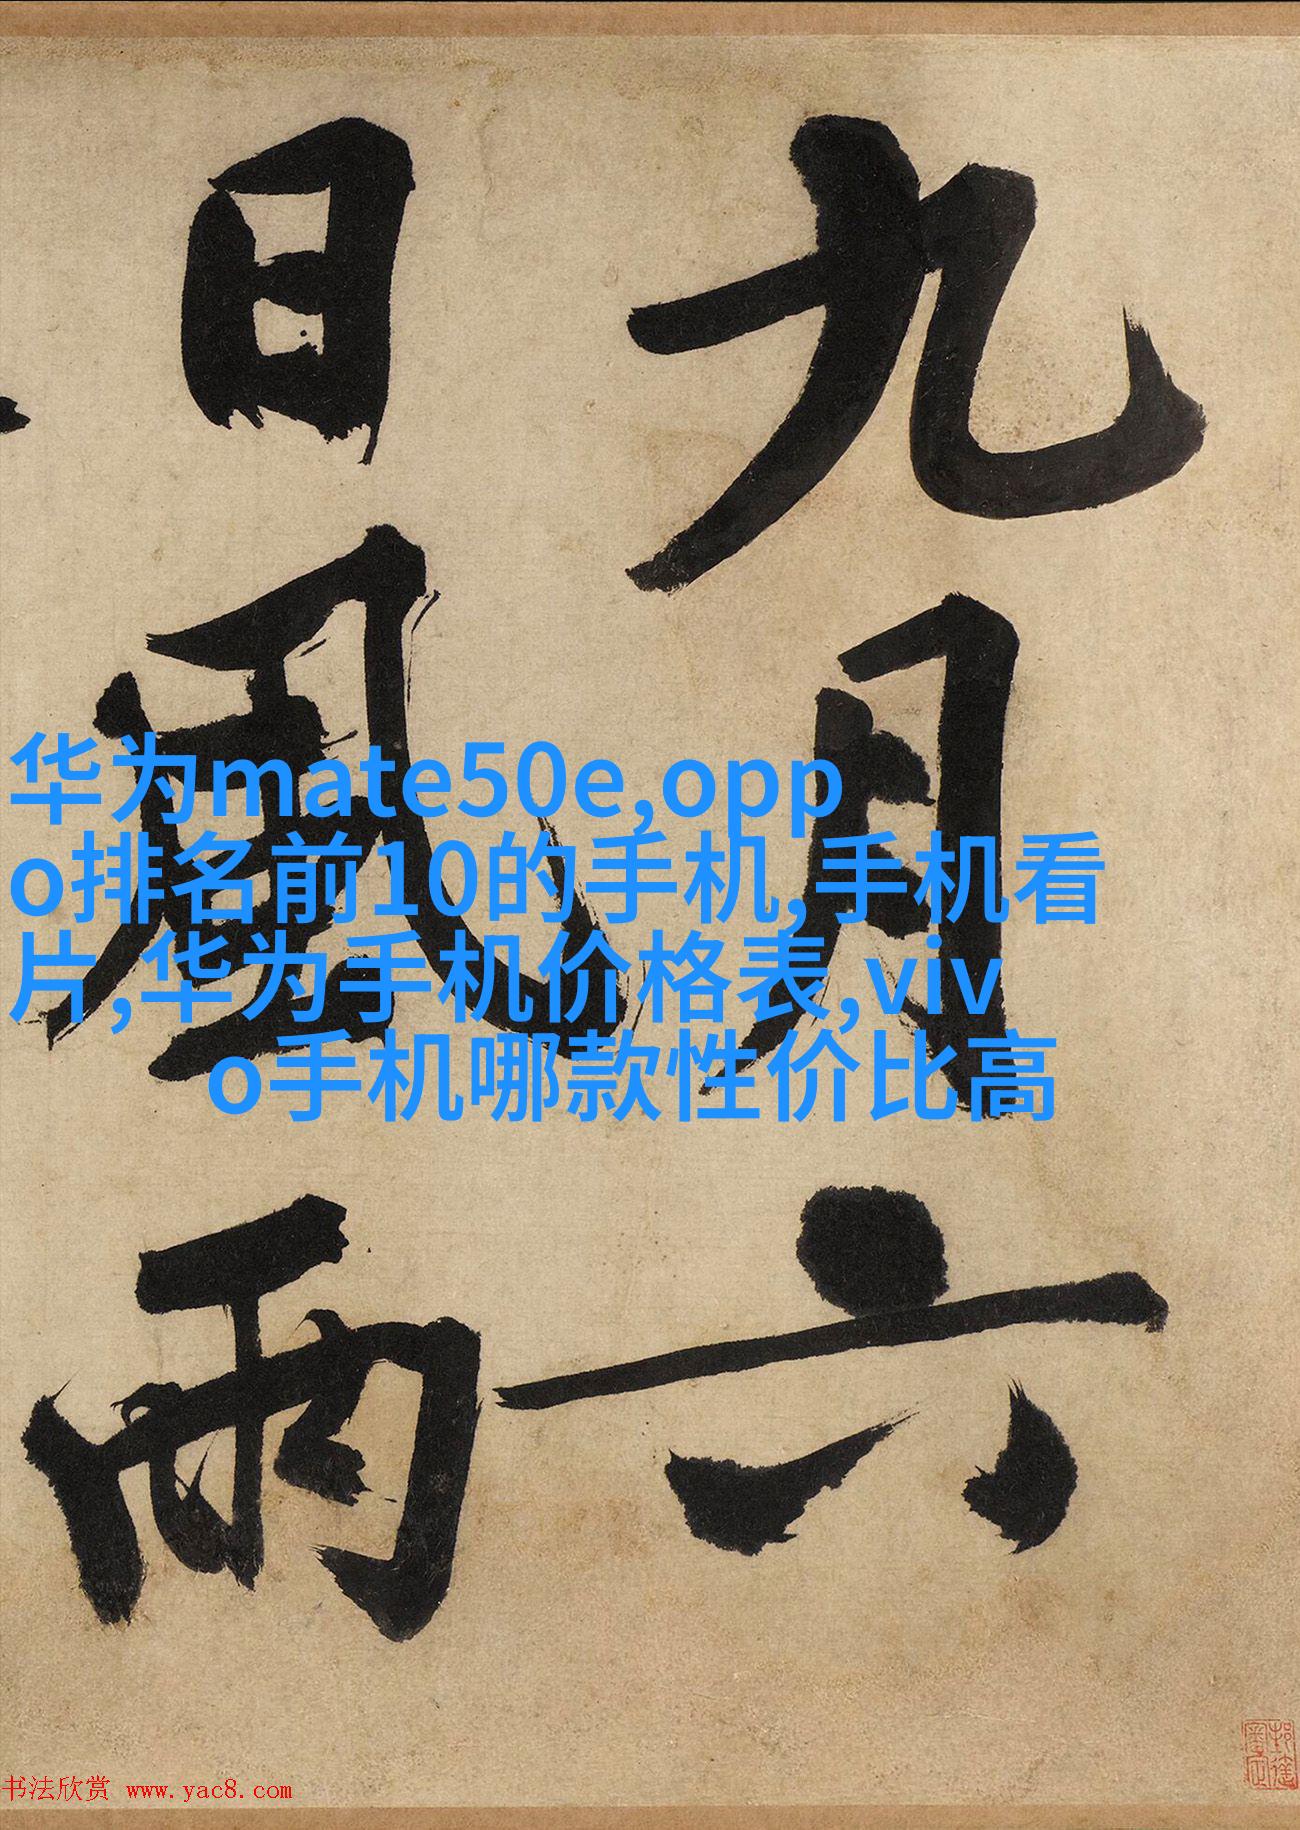 九月六
日風雨
华为mate50e,opp
o排名前10的手机,手机看
片,华为手机价格表,viv
o手机哪款性价比高
书法欣赏 www.yac8.com